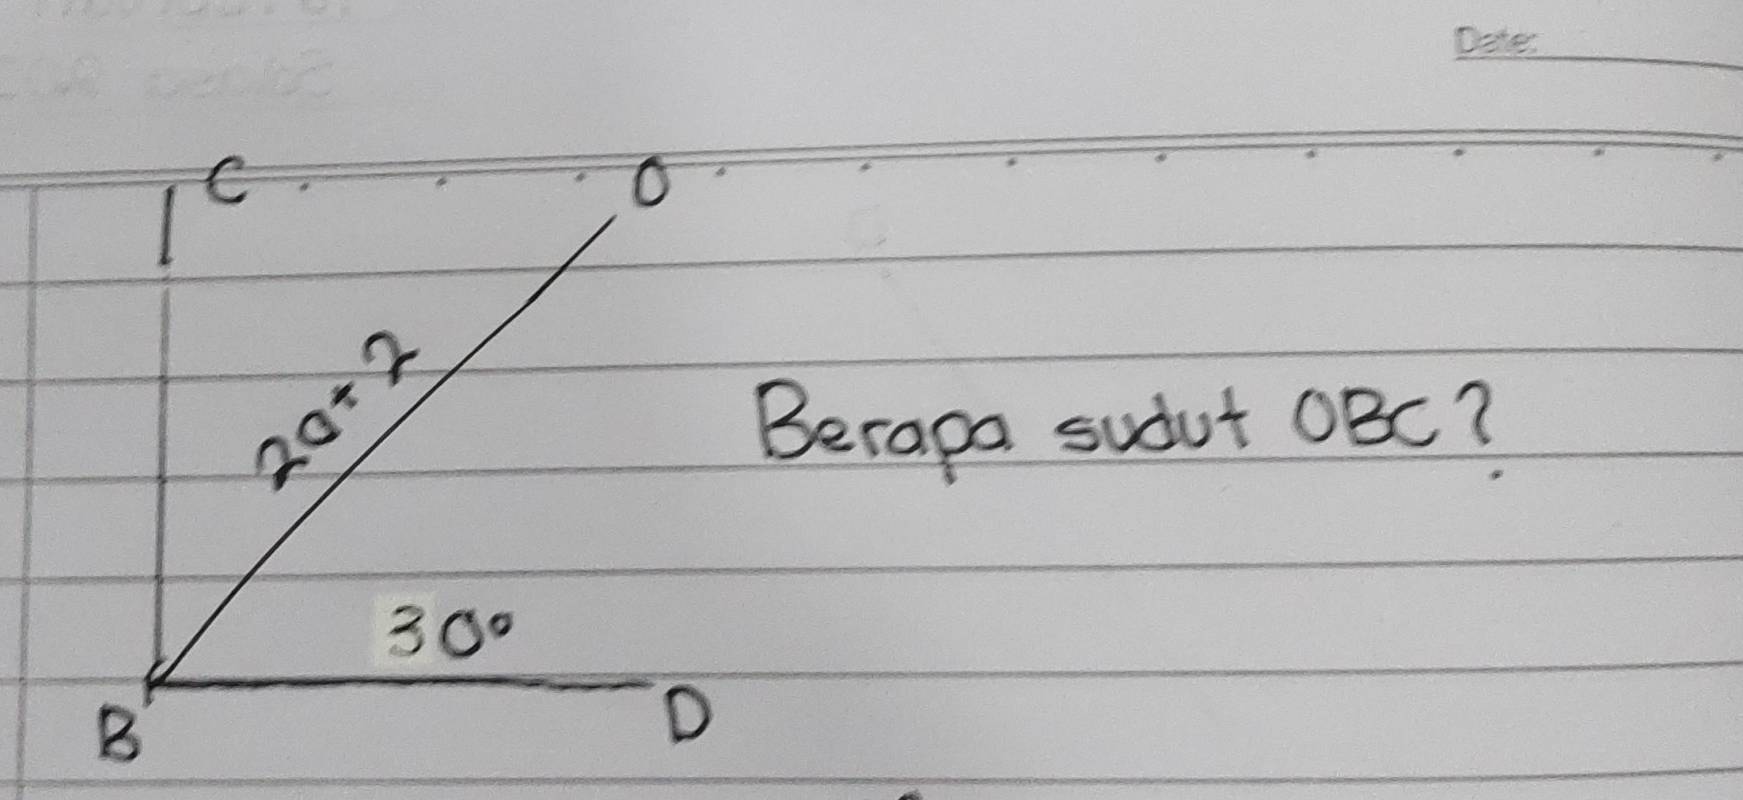 Date:
C
O
2a+7
Berapa sudut OBC?
30°
B
D